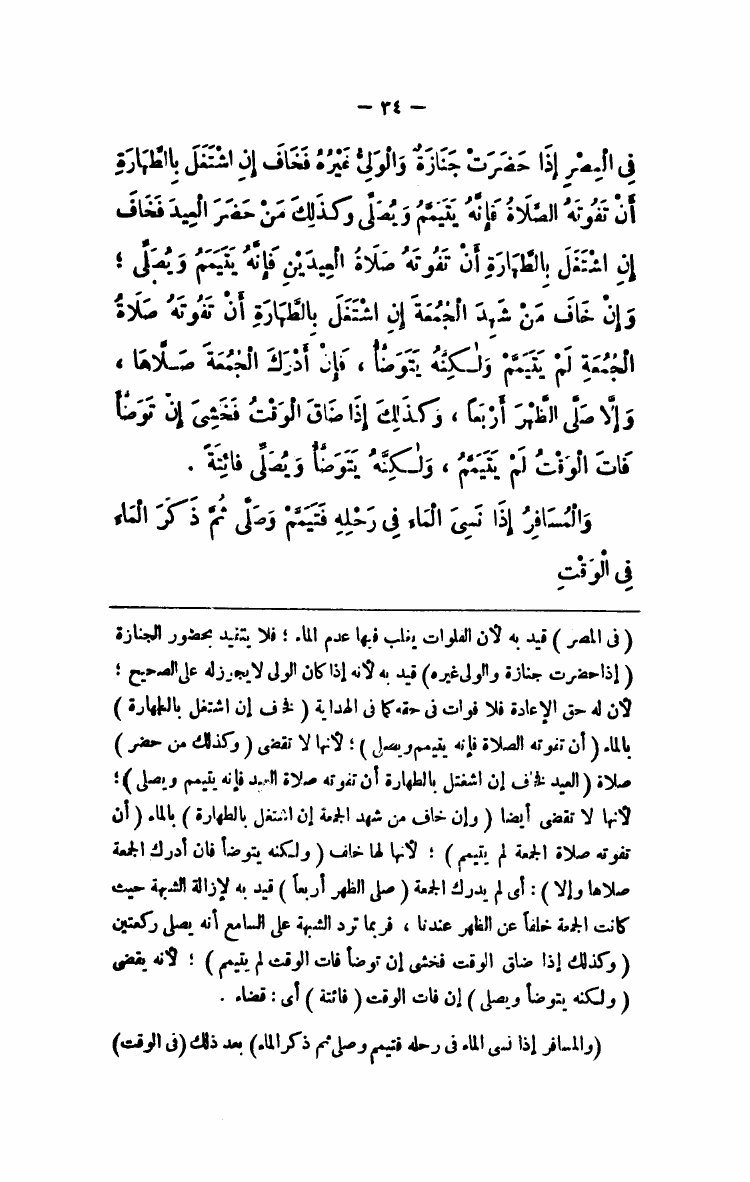 — ٣٤ —
فِى الْمِصْرِ إِذَا حَضَرَتْ جَنَازَةٌ وَالْوَلِىُّ غَيْرُهُ فَخَافَ إِنِ اشْتَغَلَ بِالطَّهَارَةِ
أَنْ تَفُوتَهُ الصَّلَاةُ فَإِنَّهُ يَتَيَمَّمُ وَيُصَلِّى وَكَذٰلِكَ مَنْ حَضَرَ الْعِيدَ فَخَافَ
إِنِ اشْتَغَلَ بِالطَّهَارَةِ أَنْ تَفُوتَهُ صَلَاةُ الْعِيدَيْنِ فَإِنَّهُ يَتَيَمَّمُ وَيُصَلِّى ؛
وَإِنْ خَافَ مَنْ شَهِدَ الْجُمُعَةَ إِنِ اشْتَغَلَ بِالطَّهَارَةِ أَنْ تَفُوتَهُ صَلَاةُ
الْجُمُعَةِ لَمْ يَتَيَمَّمْ وَلٰكِنَّهُ يَتَوَضَّأُ ، فَإِنْ أَدْرَكَ الْجُمُعَةَ صَلَّاهَا ،
وَإِلَّا صَلَّى الظُّهْرَ أَرْبَعاً ، وَكَذٰلِكَ إِذَا ضَاقَ الْوَقْتُ فَخَشِىَ إِنْ تَوَضَّأَ
فَاتَ الْوَقْتُ لَمْ يَتَيَمَّمْ ، وَلٰكِنَّهُ يَتَوَضَّأُ وَيُصَلِّى فَائِتَةً .
وَالْمُسَافِرُ إِذَا نَسِىَ الْمَاءَ فِى رَحْلِهِ فَتَيَمَّمَ وَصَلَّى ثُمَّ ذَكَرَ الْمَاءَ
فِى الْوَقْتِ
( فى المصر ) قيد به لأن الفلوات يغلب فيها عدم الماء ؛ فلا يتقيد بحضور الجنازة
( إذا حضرت جنازة والولى غيره) قيد به لأنه إذا كان الولى لا يجوز له على الصحيح ؛
لأن له حق الإعادة فلا فوات فى حقه كما فى الهداية ( فخاف إن اشتغل بالطهارة )
بالماء ( أن تفوته الصلاة فإنه يتيمم ويصلى ) ؛ لأنها لا تقضى ( وكذلك من حضر )
صلاة ( العيد فخاف إن اشتغل بالطهارة أن تفوته صلاة العيد فإنه يتيمم ويصلى ) ؛
لأنها لا تقضى أيضا ( وإن خاف من شهد الجمعة إن اشتغل بالطهارة ) بالماء ( أن
تفوته صلاة الجمعة لم يتيمم ) ؛ لأنها لها خلف ( ولكنه يتوضأ فان أدرك الجمعة
صلاها وإلا ) : أى لم يدرك الجمعة ( صلى الظهر أربعاً ) قيد به لإزالة الشبهة حيث
كانت الجمعة خلفاً عن الظهر عندنا ، فربما ترد الشبهة على السامع أنه يصلى ركعتين
( وكذلك إذا ضاق الوقت فخشى إن توضأ فات الوقت لم يتيمم ) ؛ لأنه يقضى
( ولكنه يتوضأ ويصلى ) إن فات الوقت ( فائتة ) أى : قضاء .
(والمسافر إذا نسى الماء فى رحله فتيمم وصلى ثم ذكر الماء) بعد ذلك (فى الوقت)